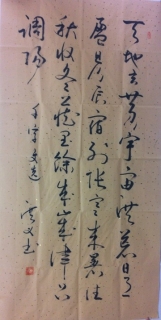 天地玄黄宇宙洪荒日月
盈昃辰宿列张寒来暑往
秋收冬藏闰余成岁律吕
调阳
千字文选